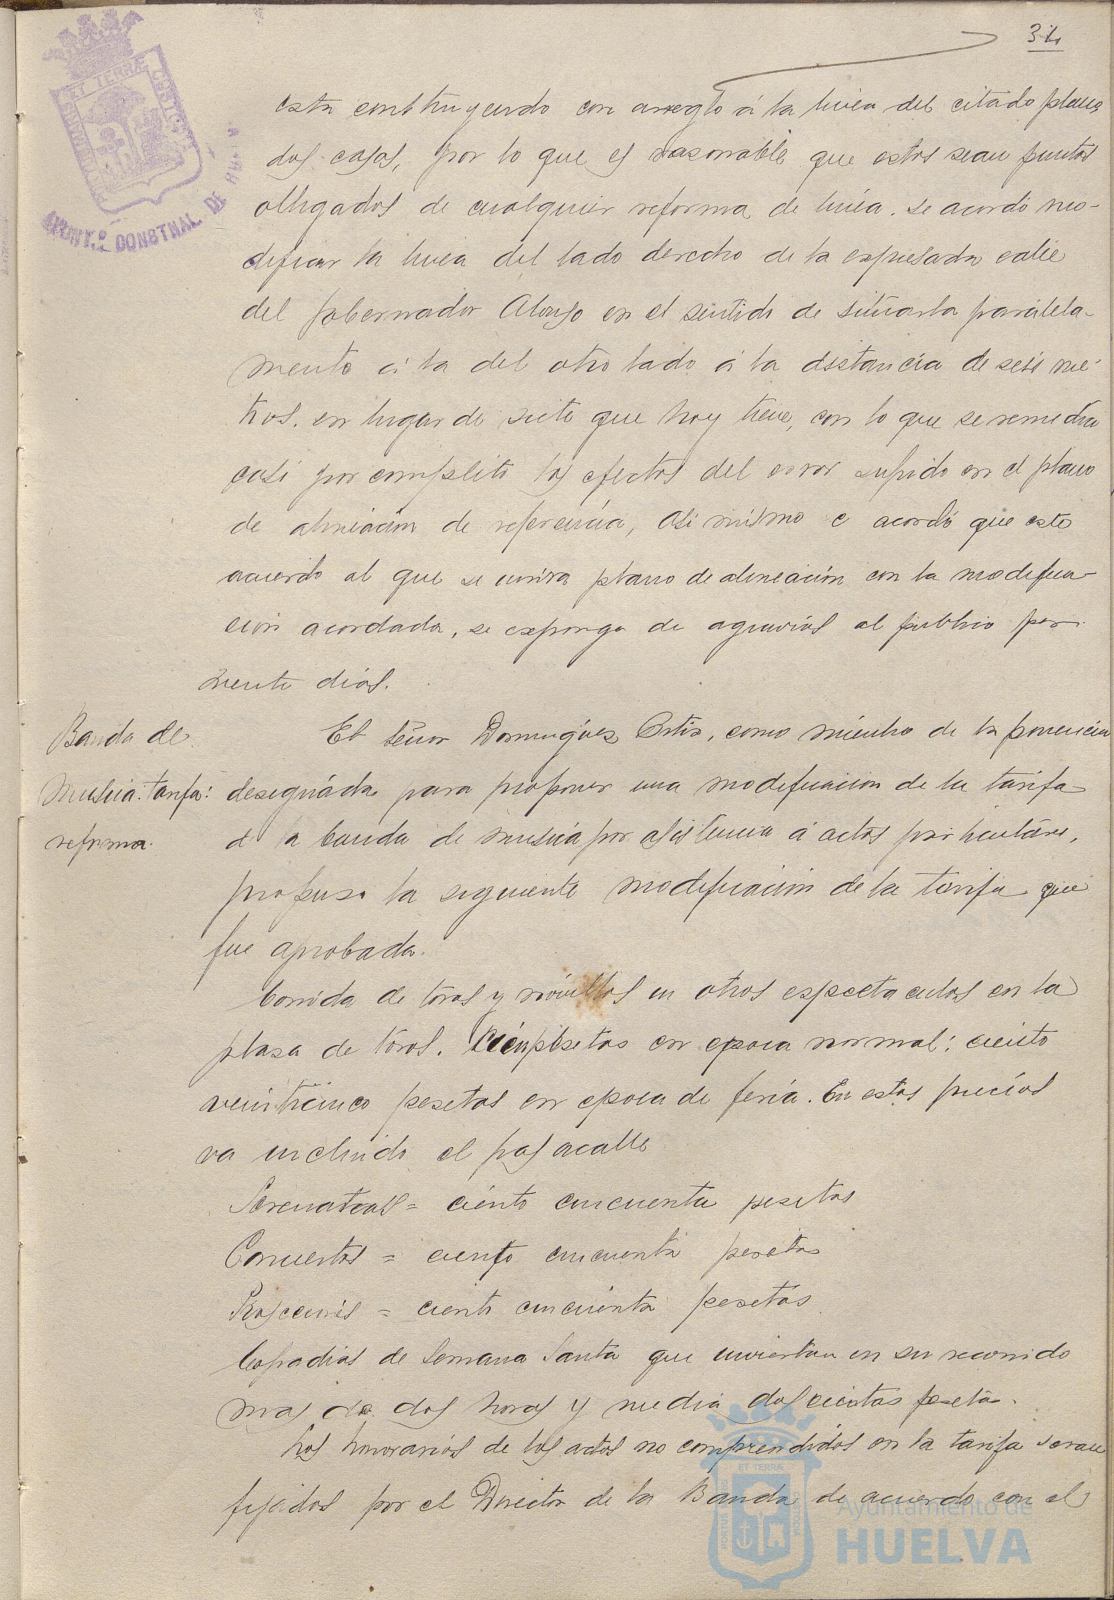 31
está construyendo con arreglo á la linea del citado plano
dos casas, por lo que es razonable que estos sean puntos
obligados de cualquier reforma de linea. se acordó mo-
dificar la linea del lado derecho de la expresada calle
del Gobernador Alonso en el sentido de situarla paralela-
mente á la del otro lado á la distancia de seis me-
tros, en lugar de siete que hoy tiene, con lo que se remedia
casi por completo los efectos del error sufrido en el plano
de alineación de referencia, asi mismo se acordó que este
acuerdo al que se unirá plano de alineación con la modifica-
ción acordada, se exponga de agravios al publico por
veinte dias.
Banda de
Musica: tarifa:
reforma.
El Señor Dominguez Ortiz, como miembro de la ponencia
designada para proponer una modificacion de la tarifa
de la banda de musica por asistencia á actos particulares,
propuso la siguiente modificación de la tarifa que
fue aprobada.
Corrida de toros y novillos u otros espectaculos en la
plaza de toros. Cien pesetas en epoca normal: ciento
veinticinco pesetas en epoca de feria. En estos precios
va incluido el pasacalle
Serenatas = ciento cincuenta pesetas
Conciertos = ciento cincuenta pesetas
Procesiones = ciento cincuenta pesetas
Cofradias de Semana Santa que inviertan en su recorrido
mas de dos horas y media doscientas pesetas.
Los honorarios de los actos no comprendidos en la tarifa seran
fijados por el Director de la Banda de acuerdo con el
AYUNT.º CONSTNAL DE HUELVA
Ayuntamiento de
HUELVA